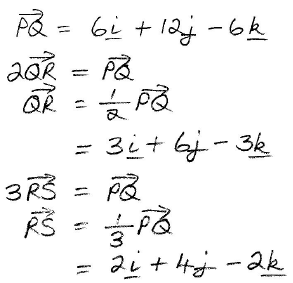 PQ⃗ = 6i̲ + 12j̲ - 6k̲
2QR⃗ = PQ⃗
QR⃗ = 1/2 PQ⃗
= 3i̲ + 6j̲ - 3k̲
3RS⃗ = PQ⃗
RS⃗ = 1/3 PQ⃗
= 2i̲ + 4j̲ - 2k̲